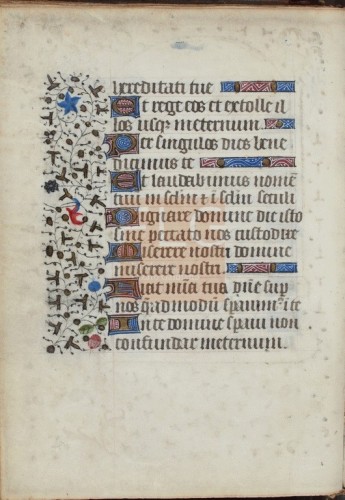 hereditati tue
Et rege eos et extolle il
los usqȝ ineternum.
Per singulos dies bene
dicimus te
Et laudabimus nomē
tuū in sclm̄ et ī sclm̄ seculi
Dignare domine die isto
sine peccato nos custodire
Miserere nostri domine
miserere nostri.
Fiat mīa tua dn̄e sup
nos q̄admodū sperauim9 ī te
In te domine speraui non
confundar ineternum.